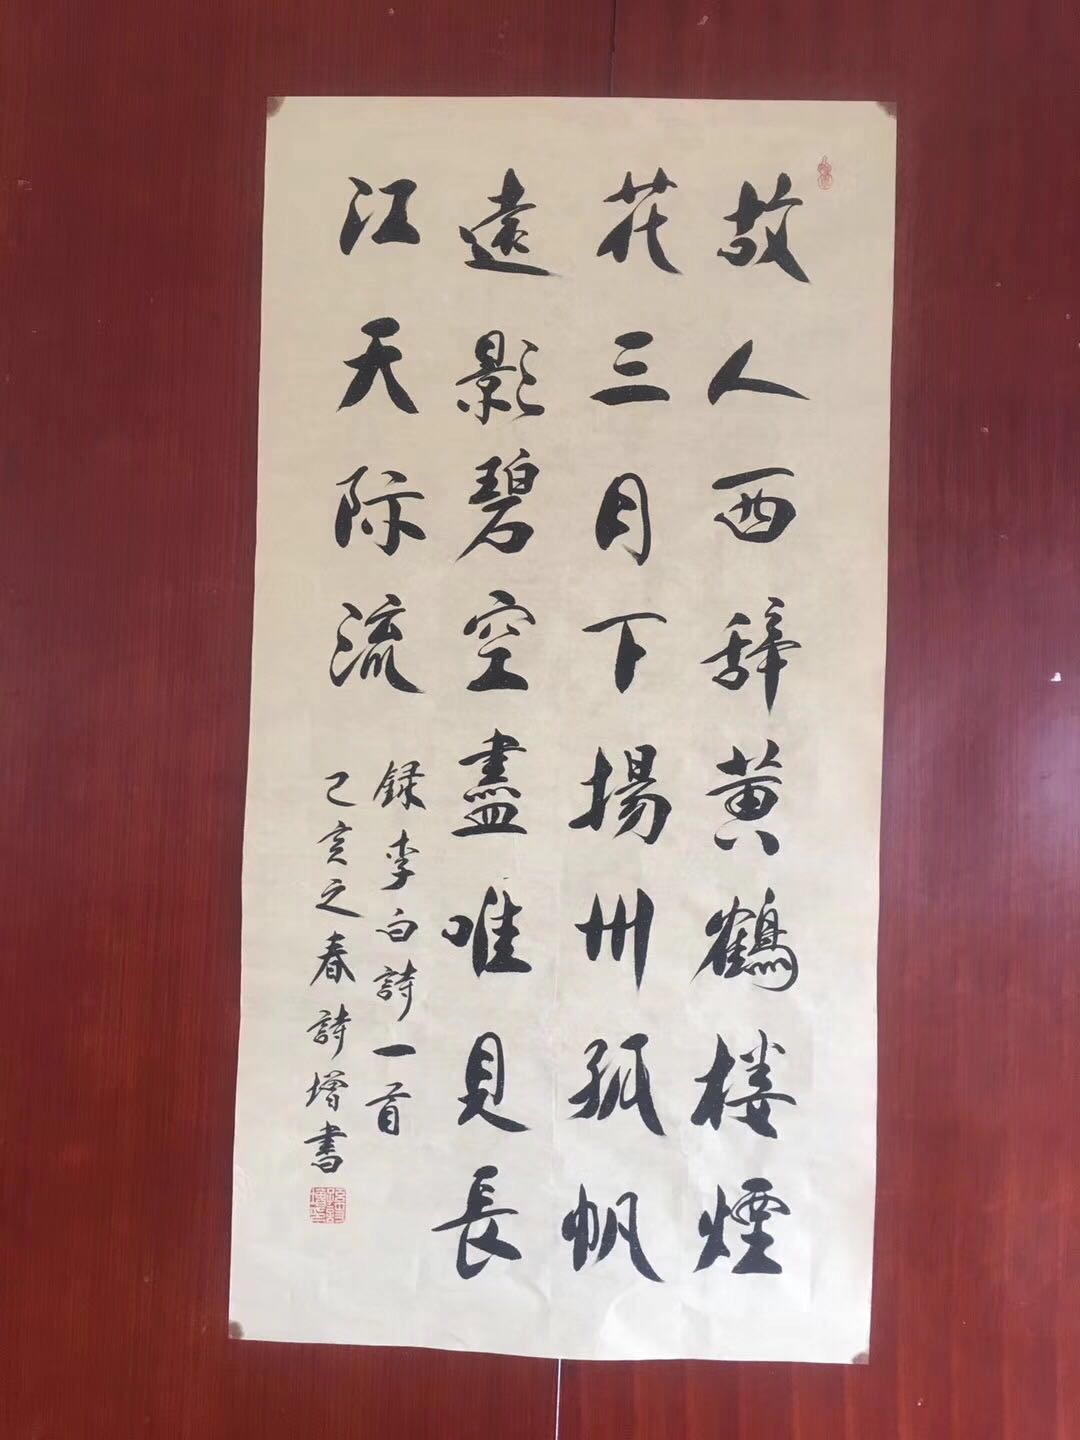 故人西辞黄鶴楼煙
花三月下揚州孤帆
遠影碧空盡唯見長
江天际流
録李白詩一首
己亥之春詩增書